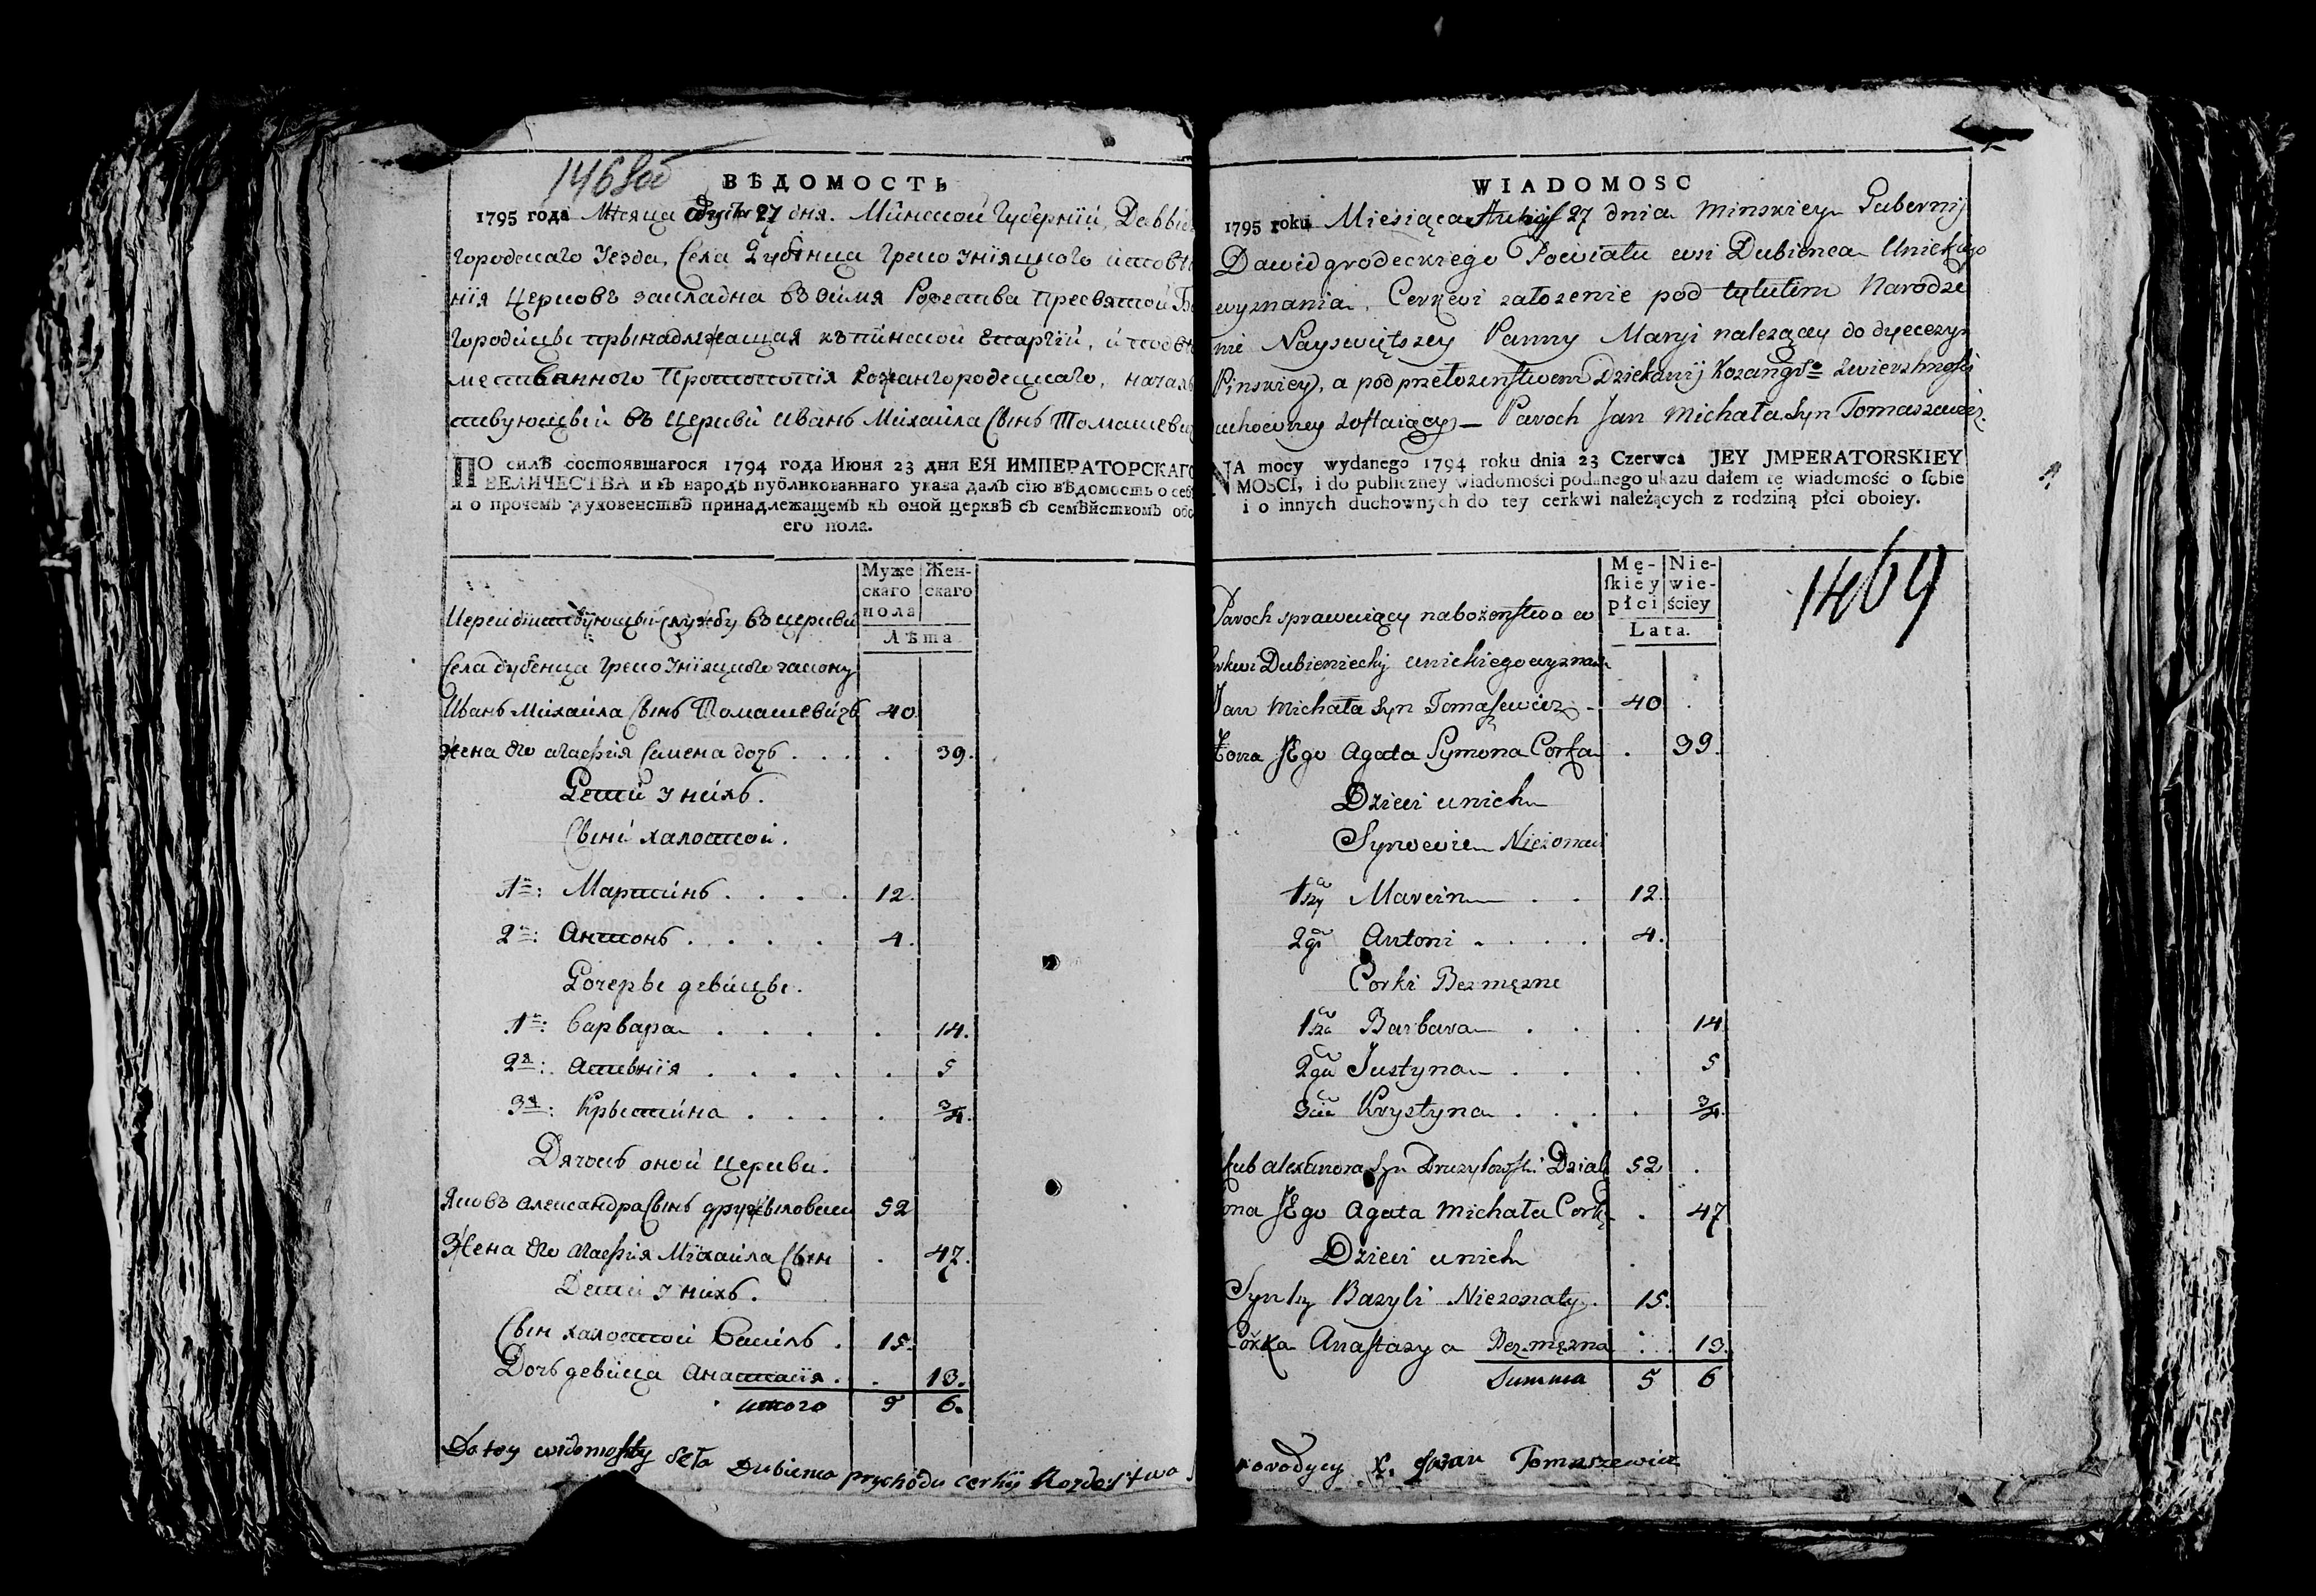 1468об
ВѢДОМОСТЬ
1795 года Мѣсяца Августа 27 дня. Минской Губернїи, Давыд
городскаго Уезда, Села Дубенца Греко Унїяцкого исповѣ
нїя Церковъ закладна во имя Рожества Пресвятой Бо
городицы прынадлежащая къ пинской Епархїи, и подвѣ
мственного Протопопїя Кожангородецкаго, началь
ствующый въ Церкви Иванъ Михаила Сынъ Томашевиц
ПО силѣ состоявшагося 1794 года Июня 23 дня ЕЯ ИМПЕРАТОРСКАГО
ВЕЛИЧЕСТВА и къ народъ публикованнаго указа далъ сїю вѣдомость о себѣ
и о прочемъ духовенствѣ принадлежащемъ къ оной церквѣ съ семѣйствомъ обо
его пола.
Мужескаго пола
Женскаго
Лѣта
Иереи дѣйствующый службу въ церкви
Села дубенца Греко Унїяцкого закону
Иванъ Михаила Сынъ Томашевичъ 40.
Жена Его агафїя Симена дочъ . . . . 39.
Дети у нихъ.
Сыни халостой.
1й: Мартинъ . . . . 12.
2й: Антонъ . . . . 4.
Дочеры девицы.
1я: Варвара . . . . 14.
2я: . . . . . 5
3я: Крыстина . . . . 3/4.
Дячокъ оной Церкви.
Яковъ александра Сынъ дружыловски 52
Жена Его агафия Михаила Сын . 47.
Дети у нихъ.
Сын халостой Василь . 15.
Дочь девица Анастасїя . . 13.
итого 5 6.
Do tey widomosty sela Dubienca prychodu cerkij Rozdestwa
WIADOMOSC
1795 roku Miesiąca Augus 27 dnia Minskiey Gubernij
Dawidgrodeckiego Powiatu wsi Dubienca Unickiego
wyznania. Cerkwi założenie pod tytułem Narodze
nie Nayswiętszey Panny Maryi należący do dyecezyi
Pinskiey, a pod przełożenstwem Dziekanij Kozangrgo zwierzhnosci
duchowney zostaiący — Paroch Jan Michała Syn Tomaszewicz.
NA mocy wydanego 1794 roku dnia 23 Czerwca JEY JMPERATORSKIEY
MOSCI, i do publiczney wiadomości podanego ukazu dałem tę wiadomość o sobie
i o innych duchownych do tey cerkwi należących z rodziną płci oboiey.
1469
Mę-skiey płci
Nie-wie-ściey
Lata.
Paroch sprawuiący nabożenstwo w
rkwi Dubienieckij unickiego wyznan
Jan Michała Syn Tomasewicz - 40 .
Zona JEgo Agata Symona Corka . 39.
Dzieci u nich
Synowie Niezonaci
1szy Marcin . . 12.
2gi Antoni . . . . 4.
Corki Bezmęzne
1sza Barbara . . . 14
2ga Justyna . . . 5
3cia Krystyna . . . . 3/4.
kub Alexandra Syn Druzyłowski Dziak 52 .
ona JEgo Agata Michała Corka . 47
Dzieci u nich
Syn 1szy Bazyli Niezonaty. 15.
Corka Anastazya Bezmęzna . 13.
Summa 5 6
rorodycy X. Iwan Tomaszewicz